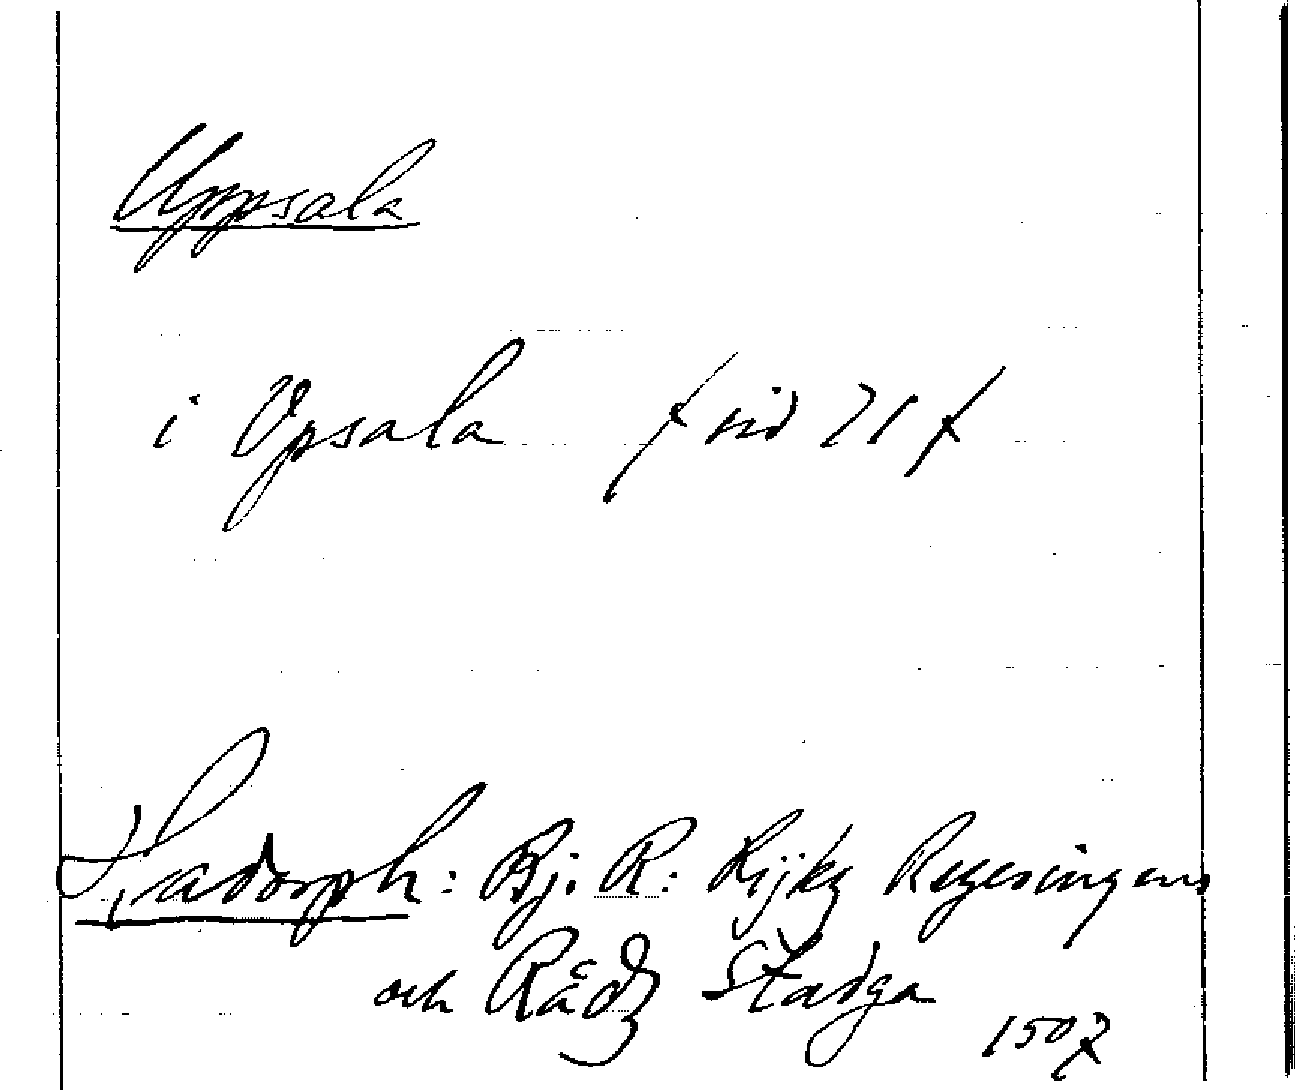 Uppsala
i Upsala / sid 71 /
Hadorph: Bj. R: Rijkz Regeringens
och Rådz Stadga
1507